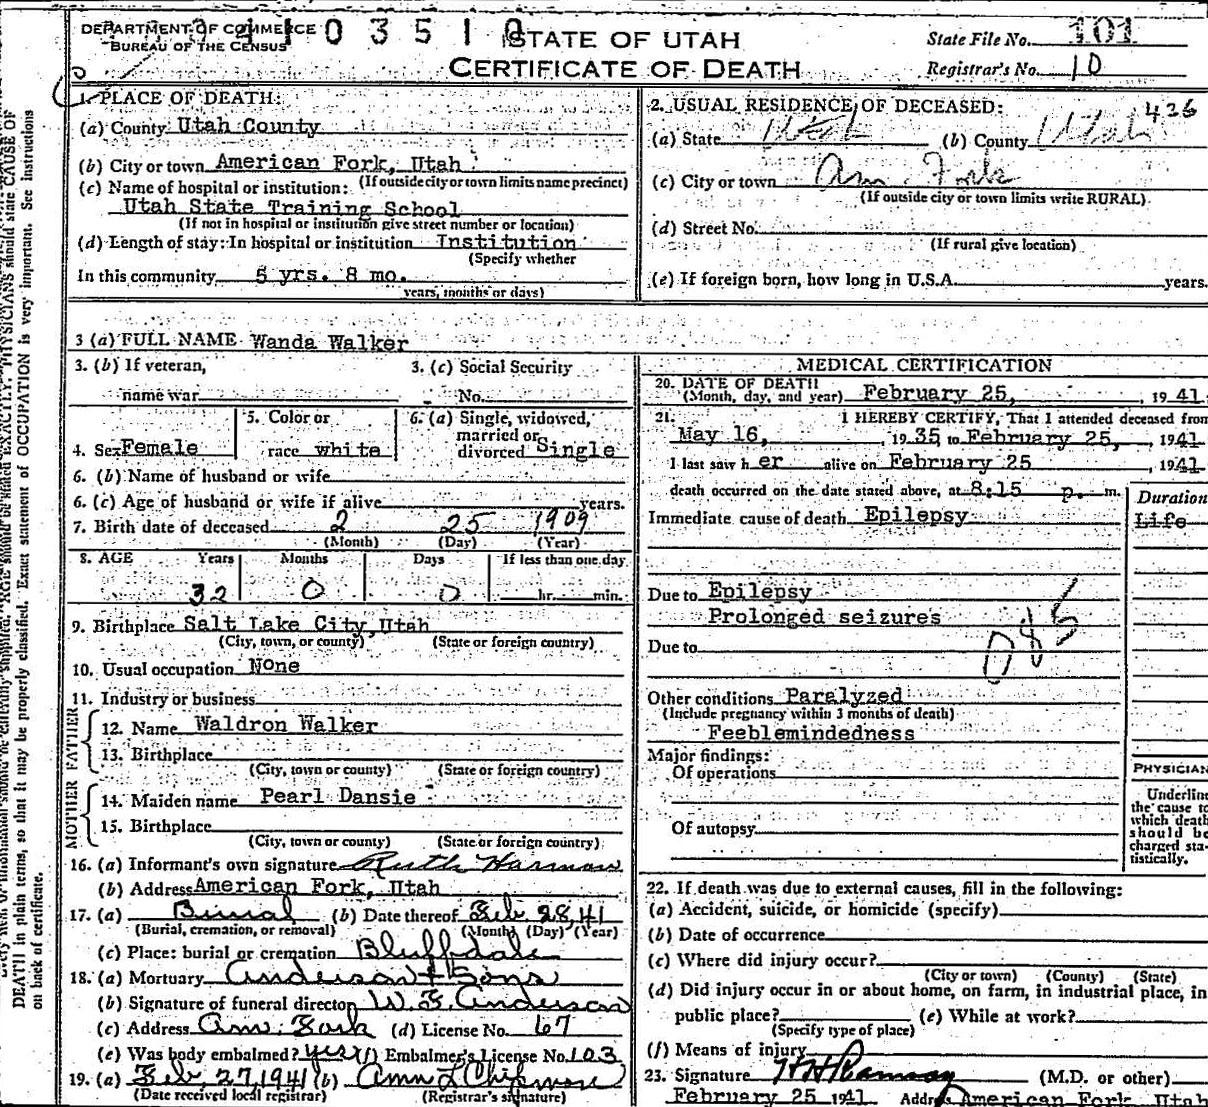 DEPARTMENT OF COMMERCE
BUREAU OF THE CENSUS
1 0 3 5 1 0
STATE OF UTAH
CERTIFICATE OF DEATH
State File No. 101
Registrar's No. 10
1. PLACE OF DEATH:
(a) County Utah County
(b) City or town American Fork, Utah
(If outside city or town limits name precinct)
(c) Name of hospital or institution:
Utah State Training School
(If not in hospital or institution give street number or location)
(d) Length of stay: In hospital or institution Institution
(Specify whether
In this community 5 yrs. 8 mo.
years, months or days)
2. USUAL RESIDENCE OF DECEASED: 436
(a) State Utah (b) County Utah
(c) City or town Am. Fork
(If outside city or town limits write RURAL)
(d) Street No.
(If rural give location)
(e) If foreign born, how long in U.S.A. years.
3 (a) FULL NAME Wanda Walker
3. (b) If veteran,
name war
3. (c) Social Security
No.
4. Sex Female
5. Color or
race white
6. (a) Single, widowed,
married or
divorced Single
6. (b) Name of husband or wife
6. (c) Age of husband or wife if alive years.
7. Birth date of deceased 2 25 1909
(Month) (Day) (Year)
8. AGE Years Months Days If less than one day
32 0 0 hr. min.
9. Birthplace Salt Lake City, Utah
(City, town, or county) (State or foreign country)
10. Usual occupation None
11. Industry or business
FATHER
12. Name Waldron Walker
13. Birthplace
(City, town or county) (State or foreign country)
MOTHER
14. Maiden name Pearl Dansie
15. Birthplace
(City, town or county) (State or foreign country)
16. (a) Informant's own signature Ruth Harmon
(b) Address American Fork, Utah
17. (a) Burial (b) Date thereof Feb. 28, 41
(Burial, cremation, or removal) (Month) (Day) (Year)
(c) Place: burial or cremation Bluffdale
18. (a) Mortuary Anderson & Sons
(b) Signature of funeral director W. E. Anderson
(c) Address Am. Fork (d) License No. 67
(e) Was body embalmed? yes (f) Embalmer's License No. 103
19. (a) Feb. 27, 1941 (b) Ann L Chipman
(Date received local registrar) (Registrar's signature)
MEDICAL CERTIFICATION
20. DATE OF DEATH
(Month, day, and year) February 25, , 19 41
21. I HEREBY CERTIFY, That I attended deceased from
May 16, , 19 35 to February 25, , 19 41
I last saw h er alive on February 25 , 19 41
death occurred on the date stated above, at 8:15 p. m.
Duration
Immediate cause of death Epilepsy Life
Due to Epilepsy
Prolonged seizures
Due to
085
Other conditions Paralyzed
(Include pregnancy within 3 months of death)
Feeblemindedness
Major findings:
Of operations
Of autopsy
PHYSICIAN
Underline
the cause to
which death
should be
charged sta-
tistically.
22. If death was due to external causes, fill in the following:
(a) Accident, suicide, or homicide (specify)
(b) Date of occurrence
(c) Where did injury occur?
(City or town) (County) (State)
(d) Did injury occur in or about home, on farm, in industrial place, in
public place? (e) While at work?
(Specify type of place)
(f) Means of injury
23. Signature H H Ramsay (M.D. or other)
February 25 1941 Address American Fork, Utah
DEATH in plain terms, so that it may be properly classified. Exact statement of OCCUPATION is very important. See Instructions
on back of certificate.